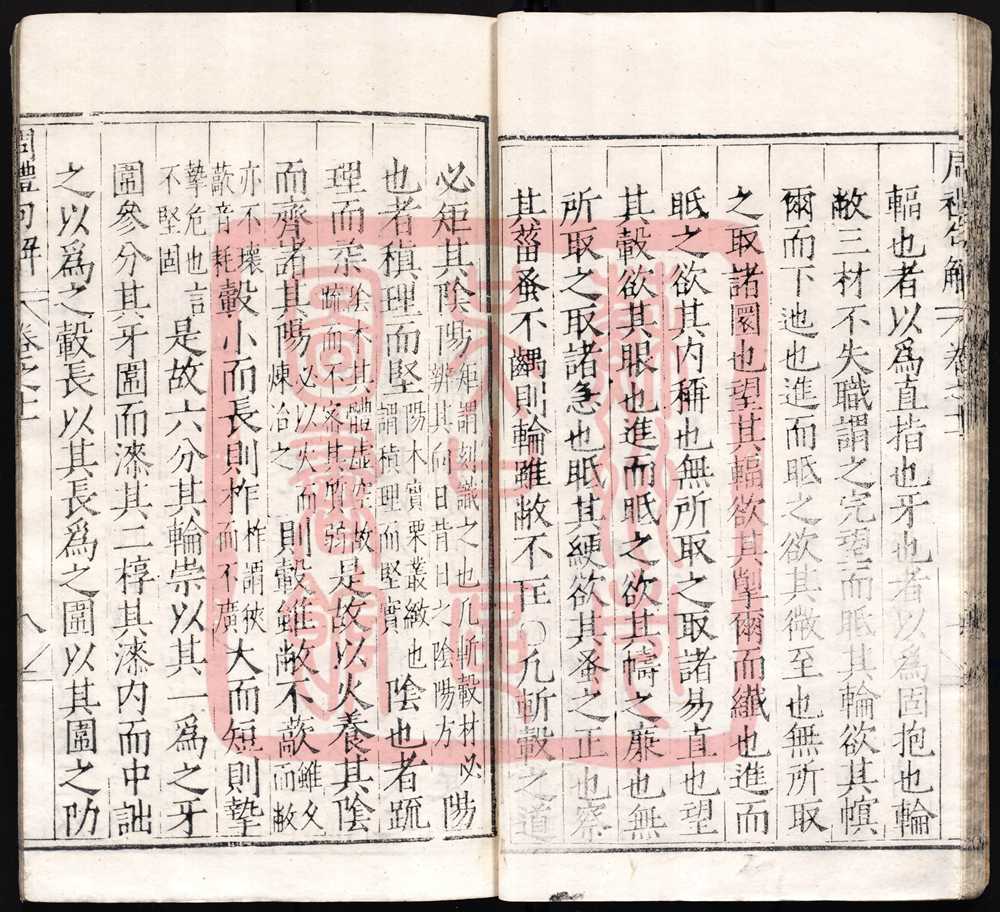 周禮句解 卷之十一
輻也者以爲直指也牙也者以爲固抱也輪
敝三材不失職謂之完望而眂其輪欲其幎
爾而下迆也進而眂之欲其微至也無所取
之取諸圜也望其輻欲其揱爾而纖也進而
眂之欲其肉稱也無所取之取諸易直也望
其轂欲其眼也進而眂之欲其幬之廉也無
所取之取諸急也眂其綆欲其蚤之正也察
其菑蚤不齵則輪雖敝不匡〇凡斬轂之道
必矩其陰陽矩謂刻識之也凡斬轂材必辨其向日背日之陰陽方陽
也者稹理而堅陽木實栗叢緻也謂稹理而堅實陰也者疏
理而柔陰木其體虛故疏而不密其質弱是故以火養其陰
而齊諸其陽必以火而煉冶之則轂雖敝不藃雖久而敝
亦不壞藃音耗轂小而長則柞柞謂狹而不廣大而短則摯
摯危也言不堅固是故六分其輪崇以其一爲之牙
圍參分其牙圍而漆其二椁其漆内而中詘
之以爲之轂長以其長爲之圍以其圍之阞
周禮句解 卷之十一 八